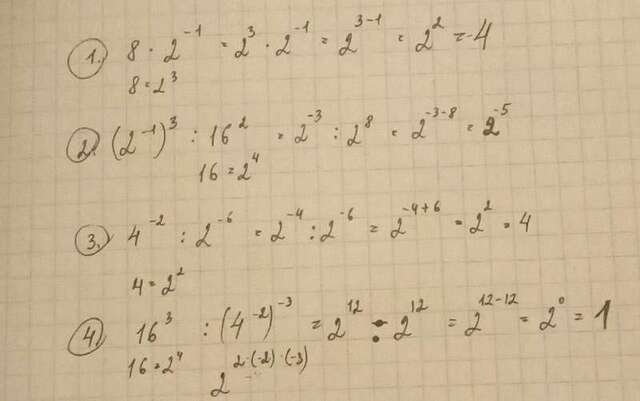 1. 8 · 2⁻¹ = 2³ · 2⁻¹ = 2³⁻¹ = 2² = 4
8 = 2³
2. (2⁻¹)³ : 16² = 2⁻³ : 2⁸ = 2⁻³⁻⁸ = 2⁻⁵
16 = 2⁴
3. 4⁻² : 2⁻⁶ = 2⁻⁴ : 2⁻⁶ = 2⁻⁴⁺⁶ = 2² = 4
4 = 2²
4. 16³ : (4⁻²)⁻³ = 2¹² : 2¹² = 2¹²⁻¹² = 2⁰ = 1
16 = 2⁴ 2²·⁽⁻²⁾·⁽⁻³⁾